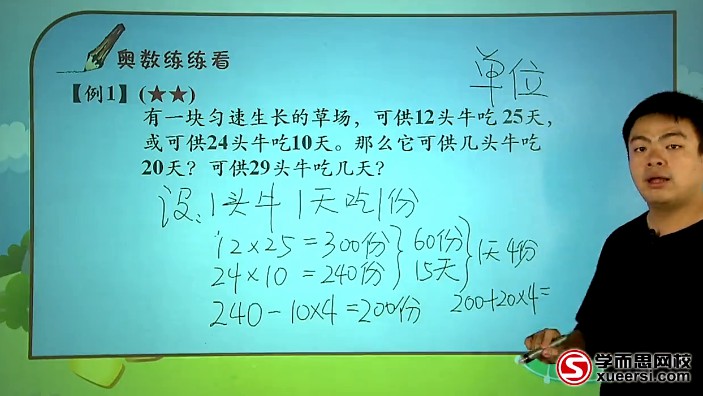 奥数练练看
单位
【例1】(★★)
有一块匀速生长的草场，可供12头牛吃 25天，
或可供24头牛吃10天。那么它可供几头牛吃
20天？可供29头牛吃几天？
设：1头牛1天吃1份
12×25=300份}60份}1天4份
24×10=240份}15天}
240-10×4=200份 200+20×4=
学而思网校
xueersi.com